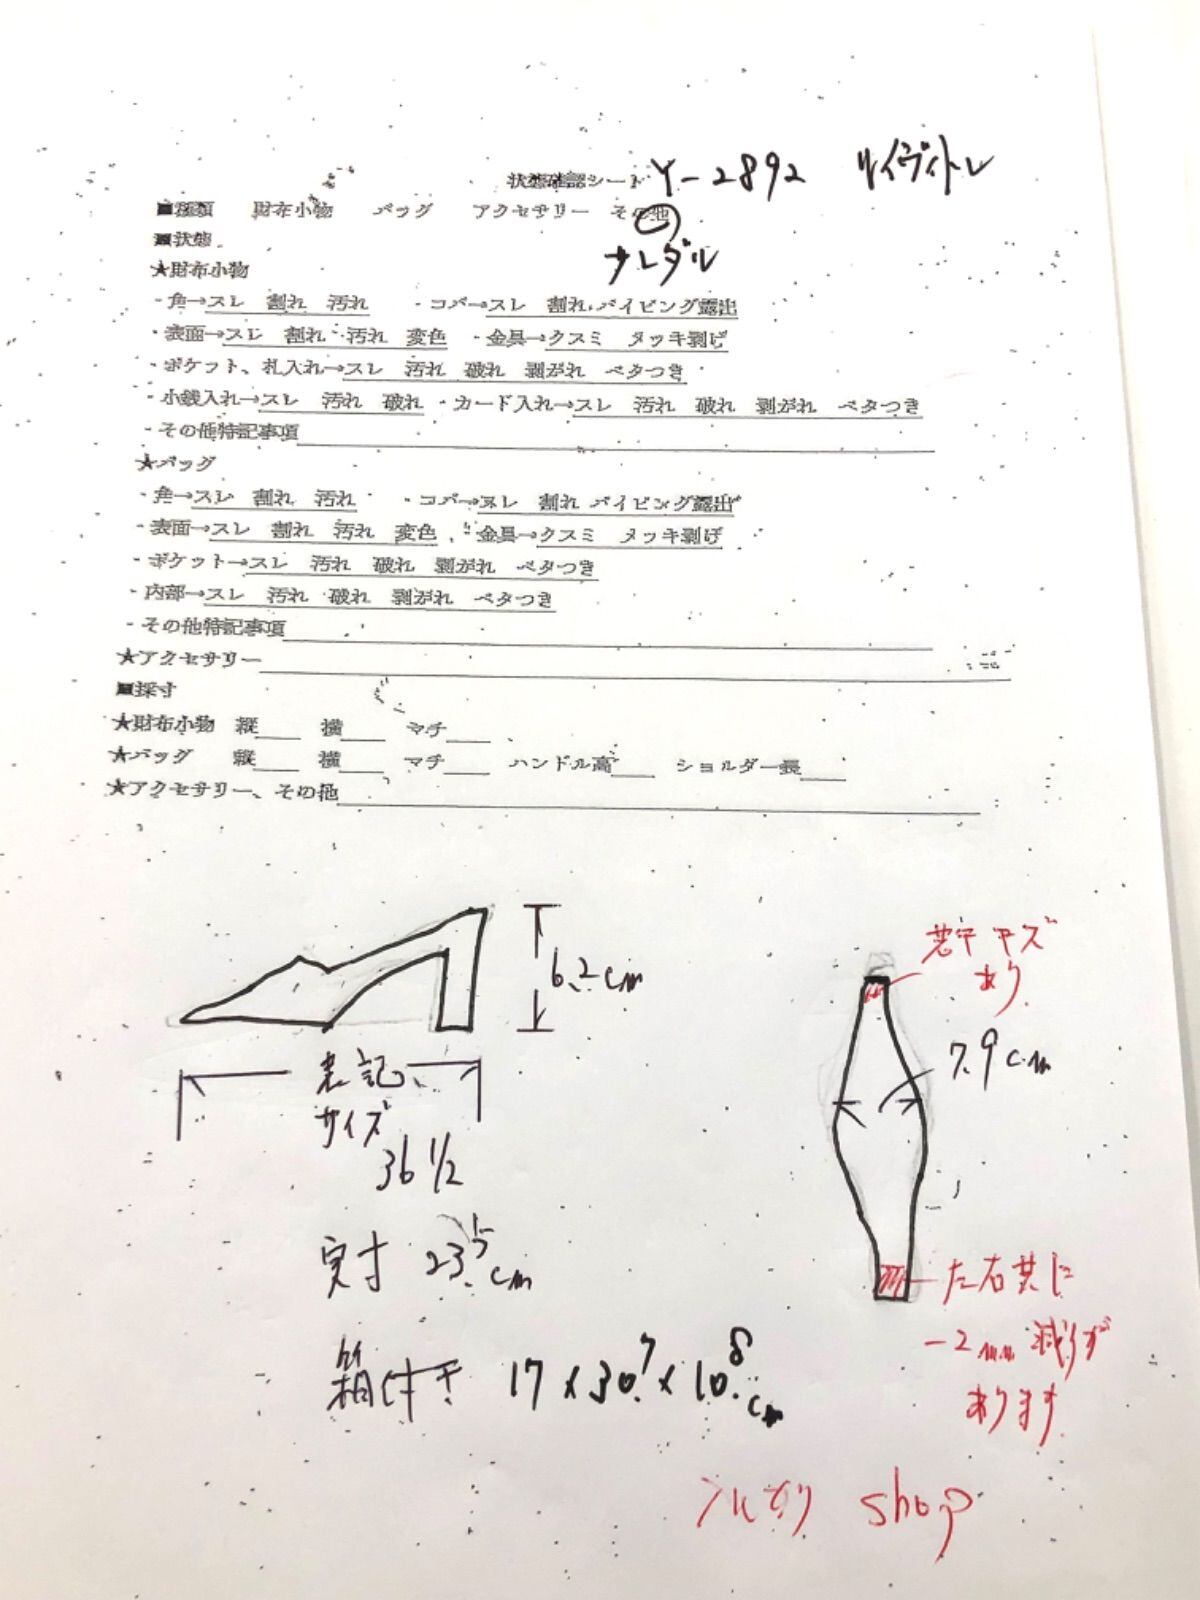 状態確認シート Y-2892 ルイヴィトン
■種類 財布小物 バッグ アクセサリー その他
サンダル
■状態
★財布小物
・角→スレ 割れ 汚れ ・コバ→スレ 割れ パイピング露出
・表面→スレ 割れ 汚れ 変色 ・金具→クスミ メッキ剥げ
・ポケット、札入れ→スレ 汚れ 破れ 剥がれ ベタつき
・小銭入れ→スレ 汚れ 破れ ・カード入れ→スレ 汚れ 破れ 剥がれ ベタつき
・その他特記事項
★バッグ
・角→スレ 割れ 汚れ ・コバ→スレ 割れ パイピング露出
・表面→スレ 割れ 汚れ 変色 ・金具→クスミ メッキ剥げ
・ポケット→スレ 汚れ 破れ 剥がれ ベタつき
・内部→スレ 汚れ 破れ 剥がれ ベタつき
・その他特記事項
★アクセサリー
■採寸
★財布小物 縦 横 マチ
★バッグ 縦 横 マチ ハンドル高 ショルダー長
★アクセサリー、その他
6.2cm
表記
サイズ
36 1/2
実寸 23.5cm
箱付き 17×30.7×10.8cm
若干キズ
あり
7.9cm
左右共に
-2mm減りが
あります
shop